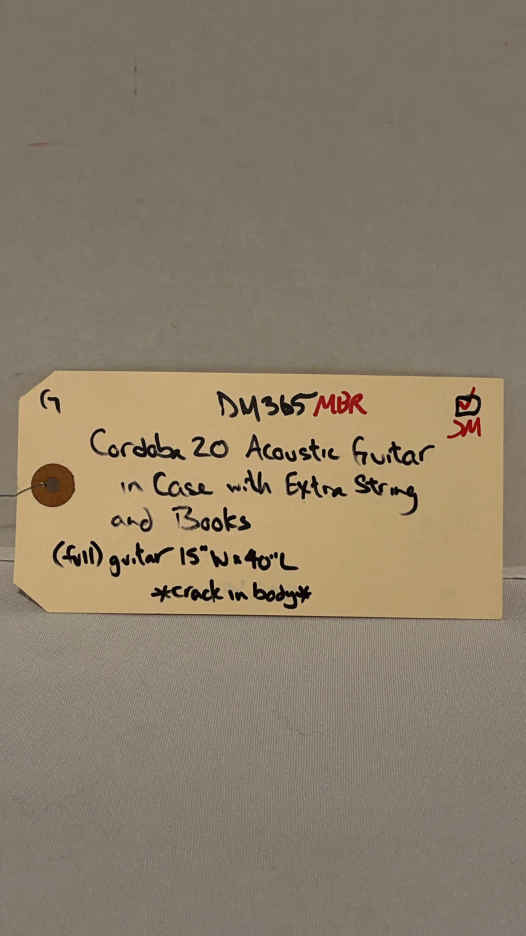 G
DM365 MBR
JM
Cordoba 20 Acoustic Guitar
in Case with Extra String
and Books
(full) guitar 15"W x 40"L
*crack in body*